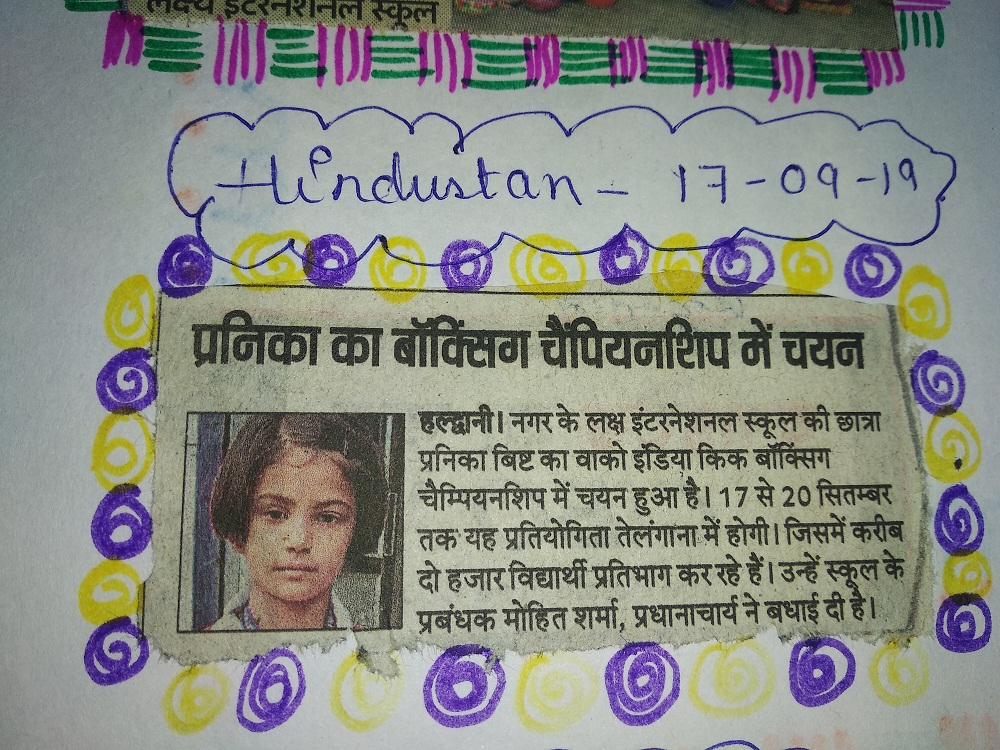 लक्ष्य इंटरनेशनल स्कूल
Hindustan - 17-09-19
प्रनिका का बॉक्सिंग चैंपियनशिप में चयन
हल्द्वानी। नगर के लक्ष इंटरनेशनल स्कूल की छात्रा
प्रनिका बिष्ट का वाको इंडिया किक बॉक्सिंग
चैम्पियनशिप में चयन हुआ है। 17 से 20 सितम्बर
तक यह प्रतियोगिता तेलंगाना में होगी। जिसमें करीब
दो हजार विद्यार्थी प्रतिभाग कर रहे हैं। उन्हें स्कूल के
प्रबंधक मोहित शर्मा, प्रधानाचार्य ने बधाई दी है।